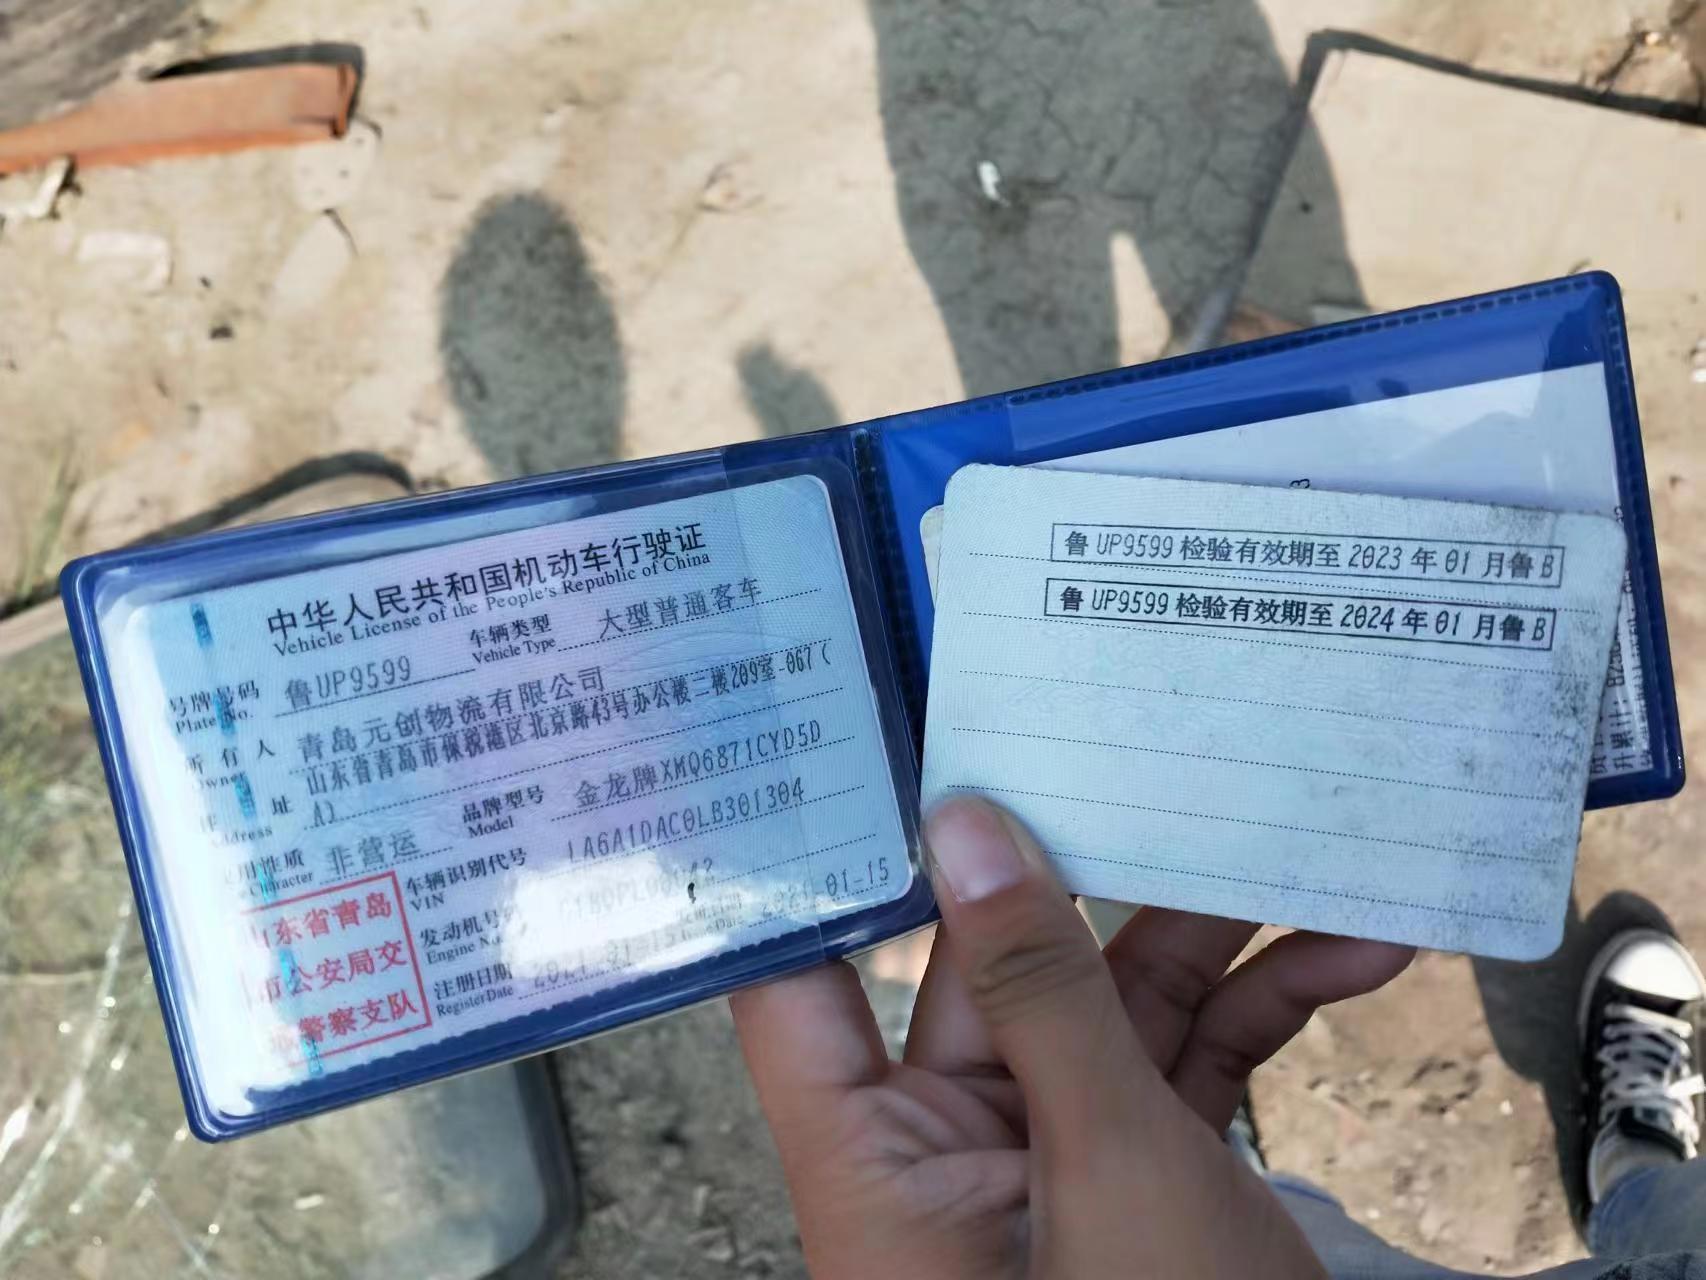 中华人民共和国机动车行驶证
Vehicle License of the People's Republic of China
号牌号码 鲁UP9599 车辆类型 大型普通客车
Plate No. Vehicle Type
所有人 青岛元创物流有限公司
Owner
住址 山东省青岛市保税港区北京路43号办公楼二楼209室-067(
Address A)
使用性质 非营运 品牌型号 金龙牌XMQ6871CYD5D
Character Model
车辆识别代号 LA6A1DAC0LB301304
VIN
发动机号码
Engine No.
注册日期 2021-01-15 发证日期 2021-01-15
Register Date Issue Date
山东省青岛
市公安局交
通警察支队
鲁UP9599检验有效期至2023年01月鲁B
鲁UP9599检验有效期至2024年01月鲁B